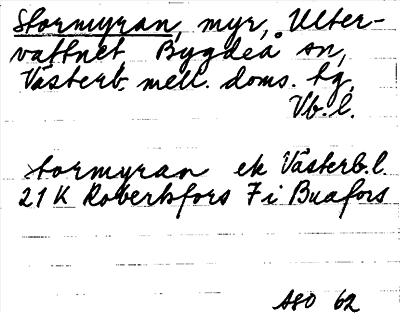 Stormyran, myr, Ulter-
vattnet Bygdeå sn,
Västerb. mell. doms. tg,
Vb. l.
stormyran ek Västerb. l.
21 K Robertsfors 7 i Buafors
ASO 62